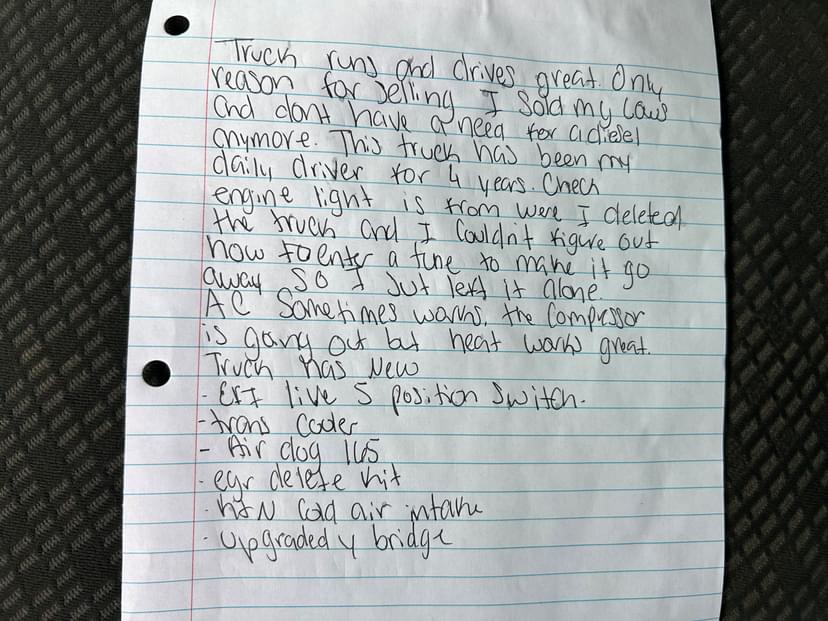 Truck runs and drives great. Only
reason for selling I sold my cows
and dont have a need for a diesel
anymore. This truck has been my
daily driver for 4 years. Check
engine light is from were I deleted
the truck and I couldn't figure out
how to enter a tune to make it go
away so I just left it alone.
AC sometimes works, the compressor
is going out but heat works great.
Truck has New
- EFI live 5 position switch.
- trans cooler
- Air dog 165
- egr delete kit
- k&N cold air intake
- upgraded y bridge